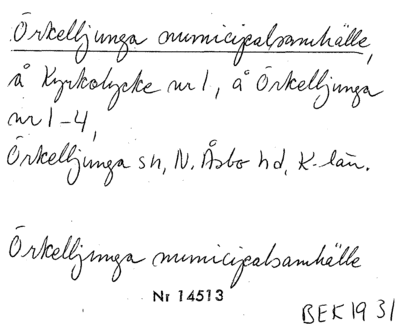 Örkelljunga municipalsamhälle,
å Kyrkolycke nr 1, å Örkelljunga
nr 1-4,
Örkelljunga sn, N. Åsbo hd, K-län.
Örkelljunga municipalsamhälle
Nr 14513
BEK 1931